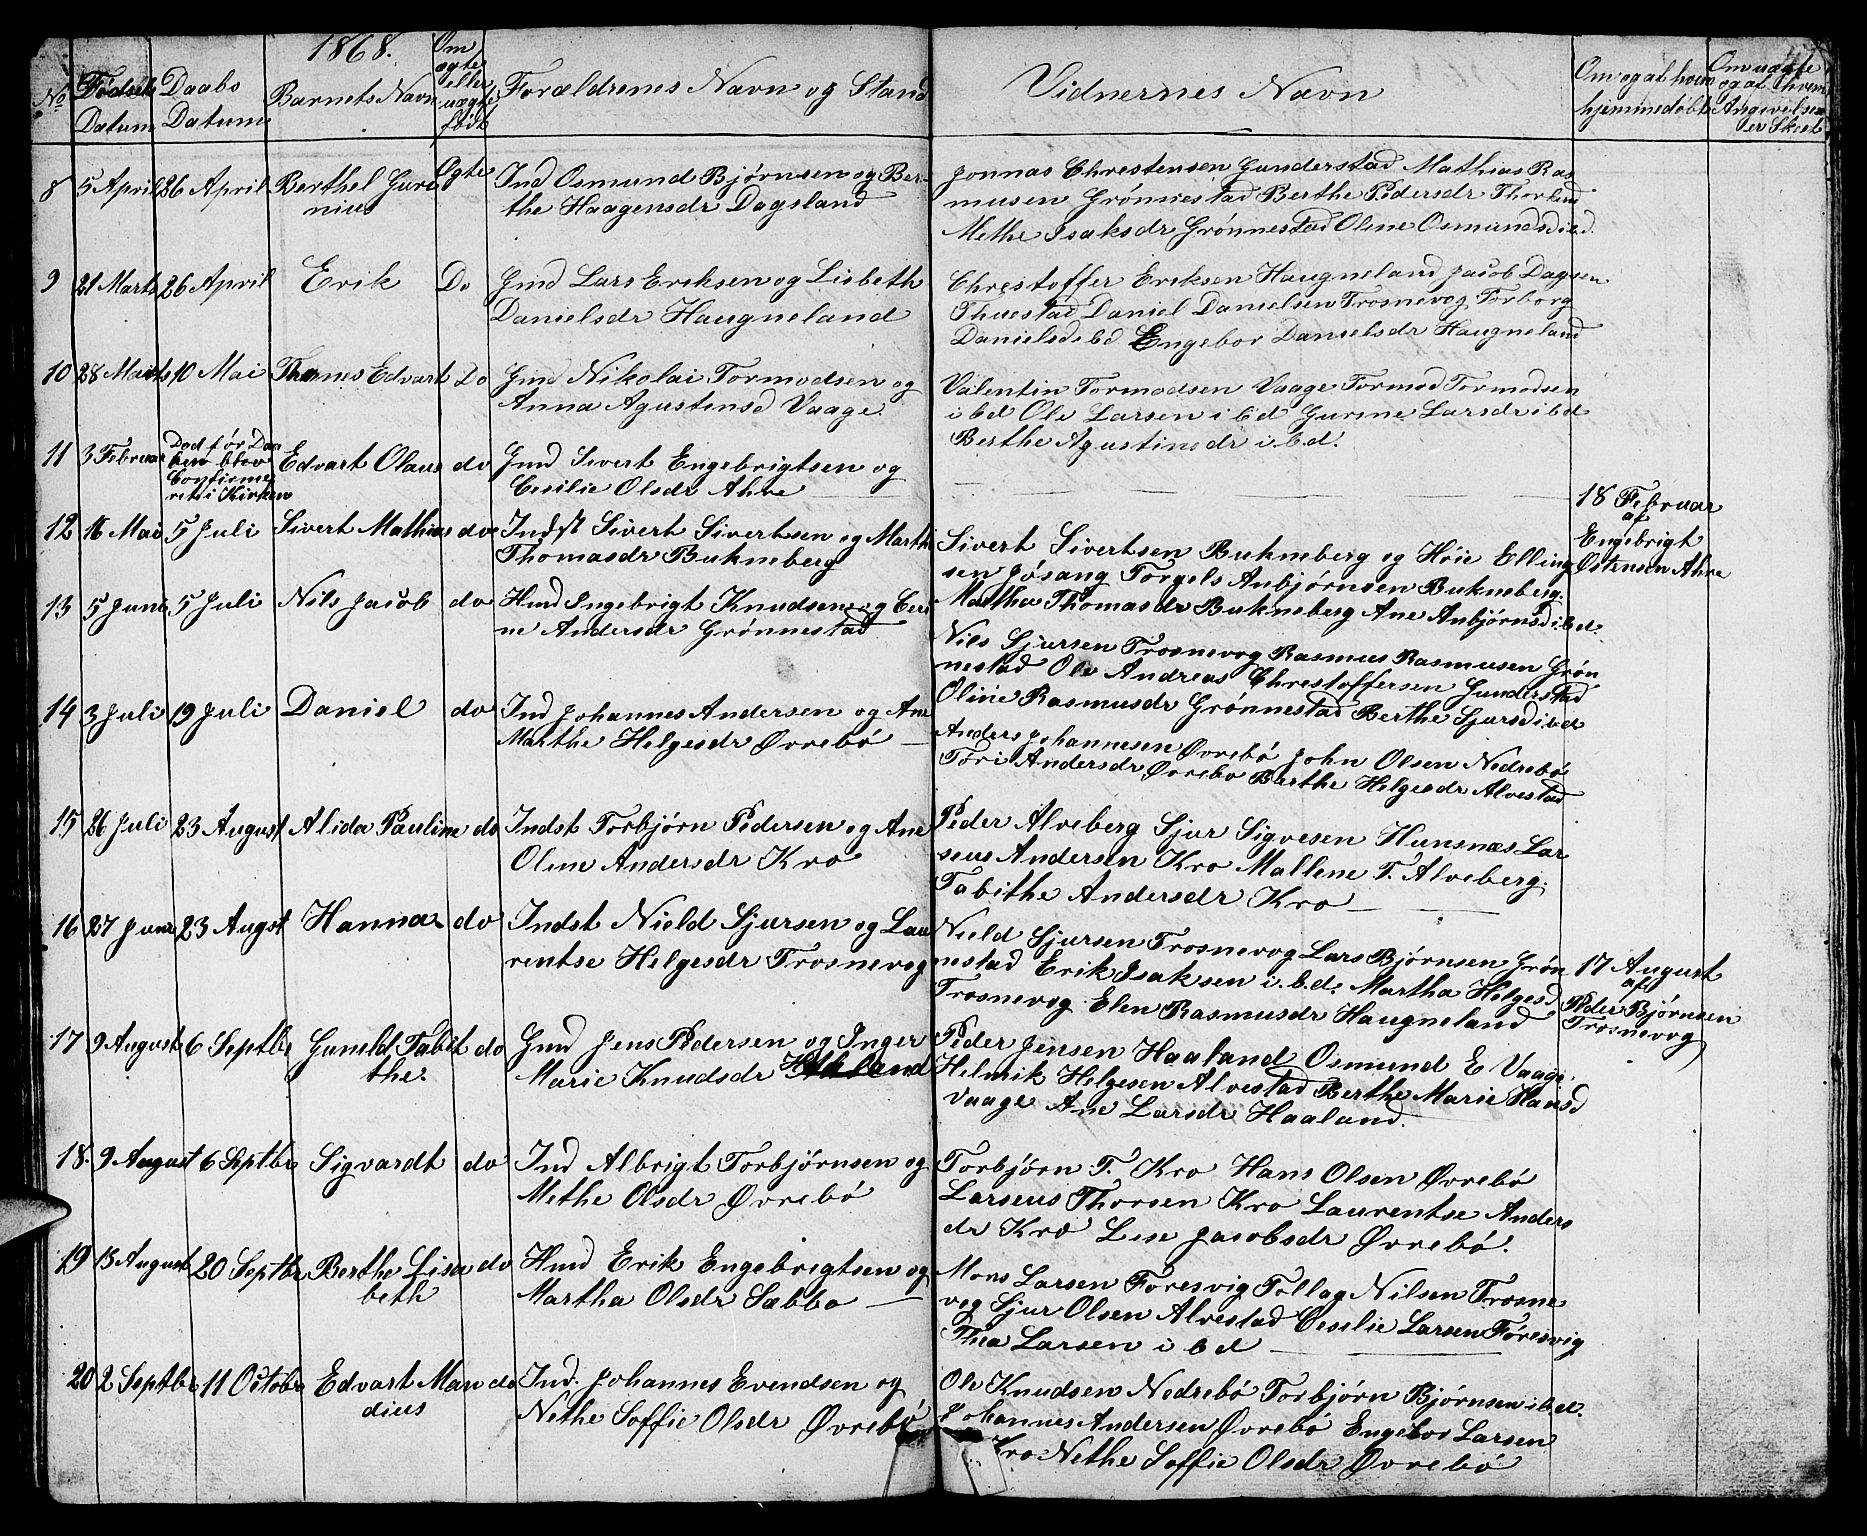 1868.
No
Fødsels Datum
Daabs Datum
Barnets Navn
Om ægte eller uægte født
Forældrenes Navn og Stand
Vidnernes Navn
Om og af hvem hjemmedøbt
Om uægte og af hvem Angivelsen er Skeet
8 5 April 26 April Berthel Guri Ægte Ind Osmund Bjørnsen og Ber-
nius the Haagensdr Dagsland
Jonnas Chrestensen Gunderstad Mathias Ras
musen Grønnestad Berthe Pedersdr
Methe Isaksdr Grønnestad Oline Osmundsd ibd.
9 21 Marts 26 April Erik Do Gmd Lars Eriksen og Lisbeth
Danielsdr Haugneland
Chrestoffer Eriksen Haugneland Jacob Dagsen
Thuestad Daniel Danielsen Trosnevog Torborg
Danielsd ibd Engebor Danielsdr Haugneland
10 28 Marts 10 Mai Thomes Edvart Do Gmd Nikolai Tormodsen og
Anna Agustensd Vaage
Valentin Tormodsen Vaage Tormod Tormodsen
i bd Ole Larsen i bd Gurine Larsdr i bd
Berthe Agustinsdr i.b.d.
11 3 Februar Død før Daa
ben blev
Confirme
ret i Kirken
Edvart Olaus do Gmd Sivert Engebrigtsen og
Cesilie Olsdr Ahre
18 Februar
af
Engebrigt
Østensen Ahre
12 16 Mai 5 Juli Sivert Mathias do Indst Sivert Sivertsen og Marth
Thomasdr Bukneberg
Sivert Sivertsen Bukneberg og Höie Elling
sen Jösang Torgels Anbjørnsen Bukneberg.
Martha Thomasdr Bukneberg Ane Anbjørnsd i.b.d.
13 5 Juni 5 Juli Nils Jacob do Hmd Ingebrigt Knudsen og Ceri
ne Andersdr Grønnestad
Nils Sjursen Trosnevog Rasmus Rasmusen Grøn
nestad Ole Andreas Chrestoffersen Gunderstad
Oline Rasmusdr Grønnestad Berthe Sjursd i.b.d
14 3 Juli 19 Juli Daniel do Ind Johannes Andersen og Ane
Marthe Helgesdr Øvrebö
Anders Johannesen Øvrebö John Olsen Nedrebö
Tori Andersdr Øvrebö Berthe Helgesdr Alvestad
15 26 Juli 23 August Alida Pauline do Indst Torbjørn Pedersen og Ane
Oline Andersdr Kro
Peder Alveberg Sjur Sigvesen Hunsnæs Lar
seus Andersen Kro Mallene T. Alveberg.
Tabithe Andersdr Kro
16 27 Juni 23 Augst Hanna do Indst Nield Sjursen og Lau
rentse Helgesdr Trosnevog
Nield Sjursen Trosnevog Lars Bjørnsen Grøn
nestad Erik Isaksen i.b.d. Martha Helgesd
Trosnevog Elen Rasmusdr Haugneland
17 August
af
Peder Bjørnsen
Trosnevog
17 9 August 6 Septbr Guneld Tabit do Gmd Jens Pedersen og Inger
the. Marie Knudsdr
Peder Jensen Haaland Osmund E Vaage.
Helmik Helgesen Alvestad Berthe Marie Hansd
Vaage Ane Larsdr Haaland.
18. 9 August 6 Septbr Sigvardt do Ind Albrigt Torbjørnsen og
Methe Olsdr Øvrebö
Torbjørn T. Kro Hans Olsen Øvrebö
Larseus Thorsen Kro Laurentse Anders
dr Kro Lise Jacobsdr Øvrebö.
19 13 August 20 Septbr Berthe Lisa do Hmd Erik Engebrigtsen og
beth Martha Olsdr Sæbbo
Mons Larsen Føresvig Tollag Nilsen Trosne
vog Sjur Olsen Alvestad Cesilie Larsen Føresvig
Thea Larsen i b d
20 2 Septbr 11 Octobr Edvart Man do Ind. Johannes Evendsen og
dius Nethe Soffie Olsdr Øvrebö
Ole Knudsen Nedrebö Torbjørn Bjørnsen i.b.d.
Johannes Andersen Øvrebö Engebor Larsen
Kro Nethe Soffie Olsdr Øvrebö